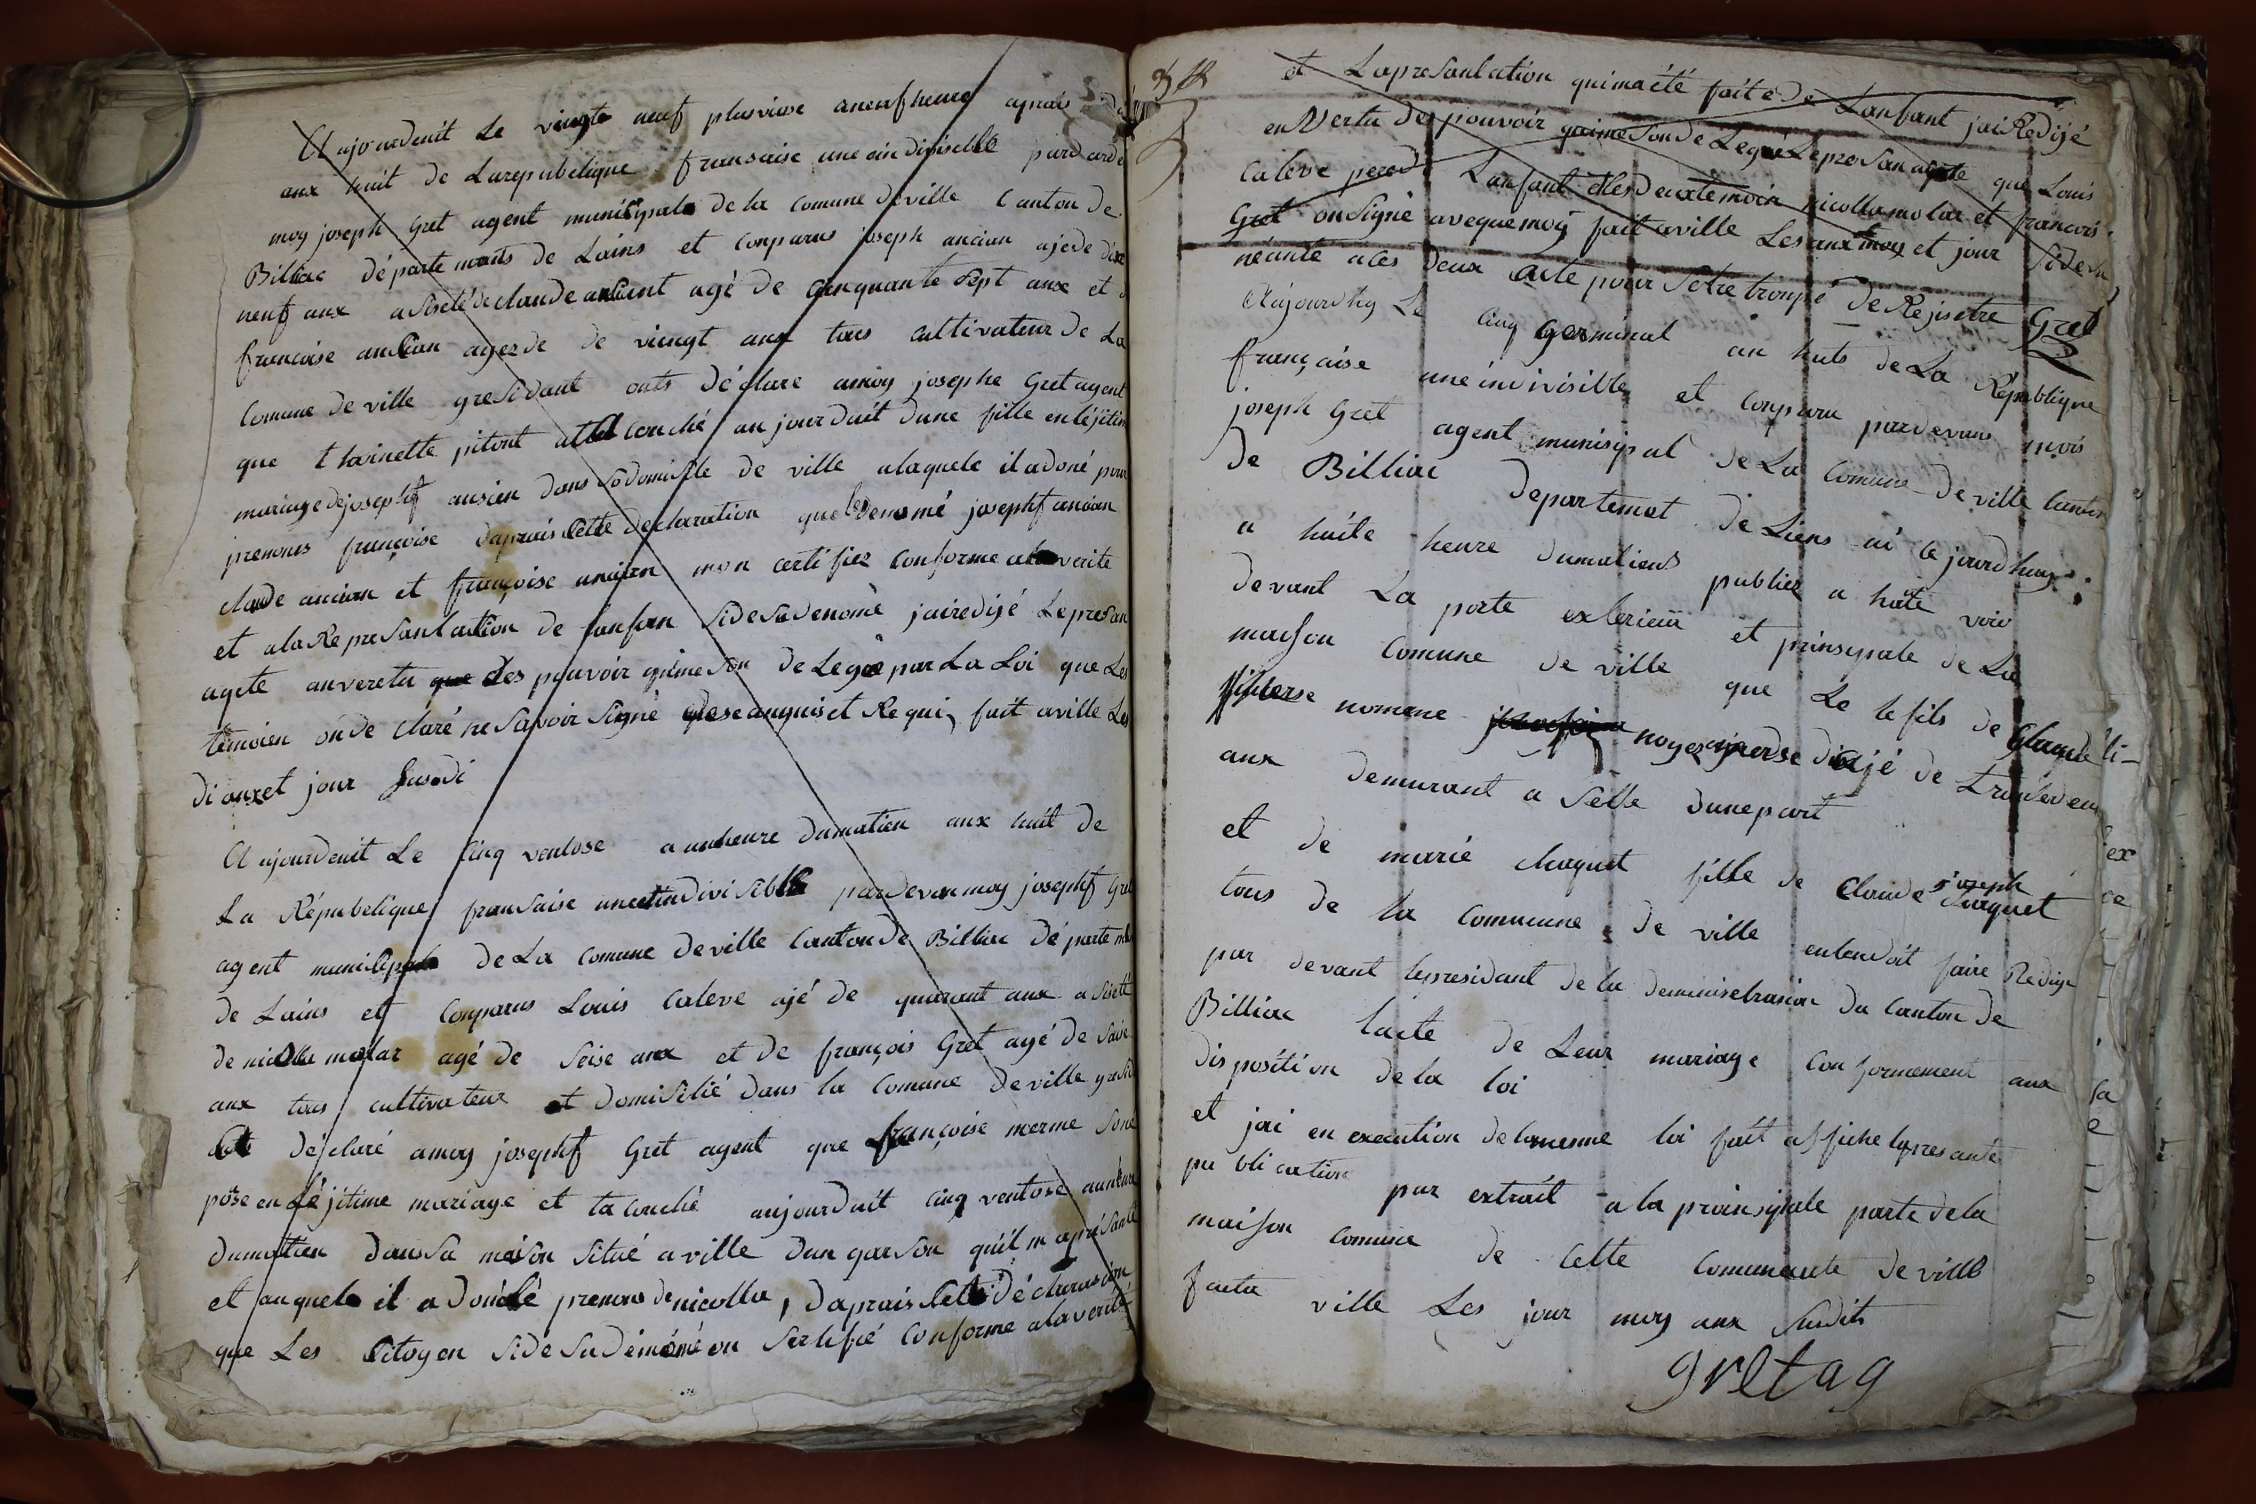 Aujourdenit Le vingte neuf pluviose aneufheure aprais
aux huit de Larepubelique fransaise une indiviselle pardevde
moy joseph Gret agent munisipale de la comune deville Canton de
Billiac départemants de Lains et conparus joseph ancian ajede dixe
neuf aux asisté de claude ancient agé de Cinquante Sept aux et
françoise ancian agerde de vingt aux tous cultivateur de La
comune de ville gresidant onts déclare amoy josephe Gret agent
que thoinette pitout at couché aujourduit dune fille enléjitim
mariage dejosephf ansien dans sodomisile de ville alaquele iladoné pour
prenoms françoise daprais Cette declaration que le denomé josephf ancian
claude ancian et françoise ancian mon certifiez conforme ala verite
et alaRepresantastion de lanfan Sidesudenomè jairedijé Lepresan
agete anveretu que des pouvoir quimeson deLeguè par La Loi que Les
temoien onde claré ne Savoir Signè de seanquis et Requi, fait aville Les
di anxet jour Susdi
Aujourdenit Le Cinq ventose a unheure dumatien aux huit de
La Républelique fransaise uneetindivisiblle pardevan moy josephf Gret
agent munisipale de La comune deville Canton de Billiac départeme
de Lains et Conparus Louis Caleve ajé de quarant aux asisté
de nicolla molar agé de Seise aux et de françois Gret agé de Saise
aux tous cultivateur et domisilié dans la Comune deville gresid
déclaré amoy josephf Gret agent que françoise merme Soné
pôse en Léjitime mariage et tacouché aujourduit cinq ventose aunheure
dumatien dansa maison Situé aville dun garson quil mapresanté
et auquele il adonélé prenons de nicolla, daprais Cette déclarasion
que Les Sitoyen Side Sudenomé on Sertifié Conforme alaverité
et Lapresantation quimaété faitede Lanfant jaiRedijé
enVertu de pouvoir quimeson deLeguè Lepresan agete que Louis
Caleve perede Lanfant et les deuxtemoin nicolla molar et francois
Gret onSigné avequemoy fait aville Lesanx moy et jour Sidesu
néante a les deux acte pour Setre trompé de Rejistre Gret
Aujourdhuy Le cinq germinal an huts de La République
française uneindivisible et conparu pardevans mois
joseph Gret agent munisipal de La comune deville canton
de Billiac departemet de Liens ai cejourdhuy
a huite heure dumatiens publiez a haute voix
devant La porte exterieur et prinsypale de La
maison comune de ville que Le le fils de Claude
nomene noyez dit ajé de
aux demurant a Selle dunepart
et de marie chaquet fille de Claude joseph Chaquet
tous de la commune de ville entendoit faire Redige
par devant lepresidant de la deminisetrasion du Canton de
Billiac lacte de Leur mariage conformement aux
disposition de la loi
et jai en execution delamenme loi fait affiche lapresante
publication par extrait a la prainsipale parte dela
maison comune de Cette comunaute deville
faita ville Les jour moy aux Susdits
gretag